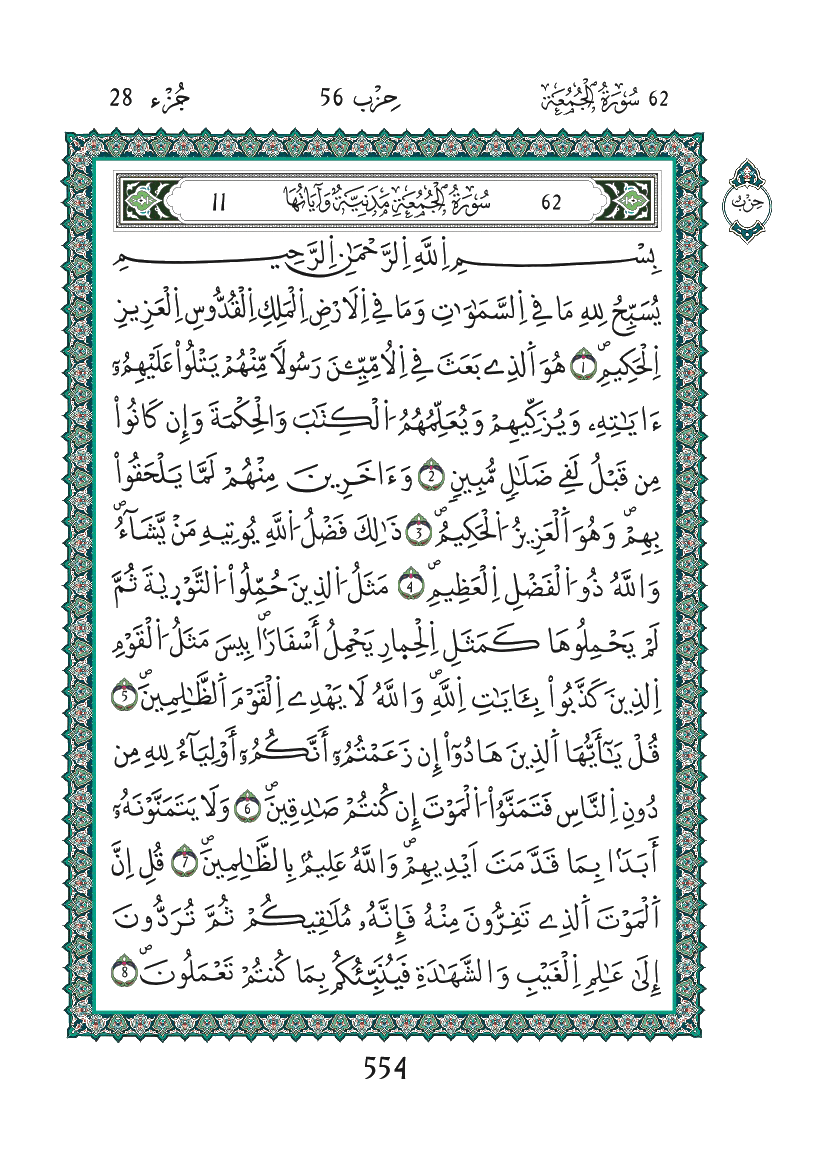 62 سُورَةُ الْجُمُعَةِ
حِزْب 56
جُزْء 28
62 سُورَةُ الْجُمُعَةِ مَدَنِيَّةٌ وَآيَاتُهَا 11
حِزْب
بِسْمِ اِللَّهِ اِلرَّحْمَٰنِ اِلرَّحِيمِ
يُسَبِّحُ لِلهِ مَا فِے اِلسَّمَٰوَٰتِ وَمَا فِے اِلَارْضِ اِلْمَلِكِ اِلْقُدُّوسِ اِلْعَزِيزِ
اِلْحَكِيمِۖ 1 هُوَ اَلذِے بَعَثَ فِے اِلُامِّيِّـۧنَ رَسُولاٗ مِّنْهُمْ يَتْلُواْ عَلَيْهِمُۥٓ
ءَايَٰتِهِۦ وَيُزَكِّيهِمْ وَيُعَلِّمُهُمُ اُلْكِتَٰبَ وَالْحِكْمَةَ وَإِن كَانُواْ
مِن قَبْلُ لَفِے ضَلَٰلٖ مُّبِينٖ 2 وَءَاخَرِينَ مِنْهُمْ لَمَّا يَلْحَقُواْ
بِهِمْۖ وَهُوَ اَلْعَزِيزُ اُلْحَكِيمُۖ 3 ذَٰلِكَ فَضْلُ اُللَّهِ يُوتِيهِ مَنْ يَّشَآءُۖ
وَاللَّهُ ذُو اُلْفَضْلِ اِلْعَظِيمِۖ 4 مَثَلُ اُلذِينَ حُمِّلُواْ اُلتَّوْر۪يٰةَ ثُمَّ
لَمْ يَحْمِلُوهَا كَمَثَلِ اِلْحِم۪ارِ يَحْمِلُ أَسْفَاراَۢۖ بِيسَ مَثَلُ اُلْقَوْمِ
اِلذِينَ كَذَّبُواْ بِـَٔايَٰتِ اِللَّهِۖ وَاللَّهُ لَا يَهْدِے اِلْقَوْمَ اَلظَّٰلِمِينَۖ 5
قُلْ يَٰٓأَيُّهَا اَلذِينَ هَادُوٓاْ إِن زَعَمْتُمُۥٓ أَنَّكُمُۥٓ أَوْلِيَآءُ لِلهِ مِن
دُونِ اِلنَّاسِ فَتَمَنَّوُاْ اُلْمَوْتَ إِن كُنتُمْ صَٰدِقِينَۖ 6 وَلَا يَتَمَنَّوْنَهُۥٓ
أَبَداَۢ بِمَا قَدَّمَتَ اَيْدِيهِمْۖ وَاللَّهُ عَلِيمُۢ بِالظَّٰلِمِينَۖ 7 قُلِ اِنَّ
اَلْمَوْتَ اَلذِے تَفِرُّونَ مِنْهُ فَإِنَّهُۥ مُلَٰقِيكُمْ ثُمَّ تُرَدُّونَ
إِلَىٰ عَٰلِمِ اِلْغَيْبِ وَالشَّهَٰدَةِ فَيُنَبِّئُكُم بِمَا كُنتُمْ تَعْمَلُونَۖ 8
554